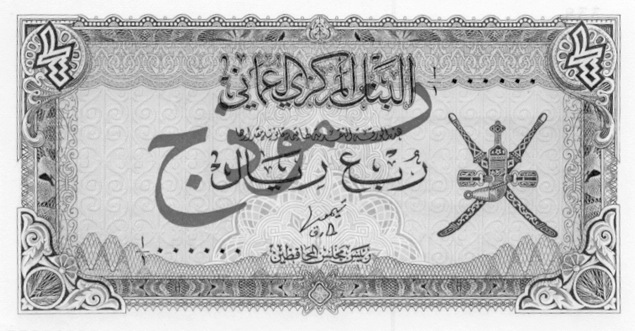 البنك المركزي العماني
١/١ ٠٠٠٠٠٠
نموذج
ربع ريال
١/١ ٠٠٠٠٠٠
رئيس مجلس المحافظين